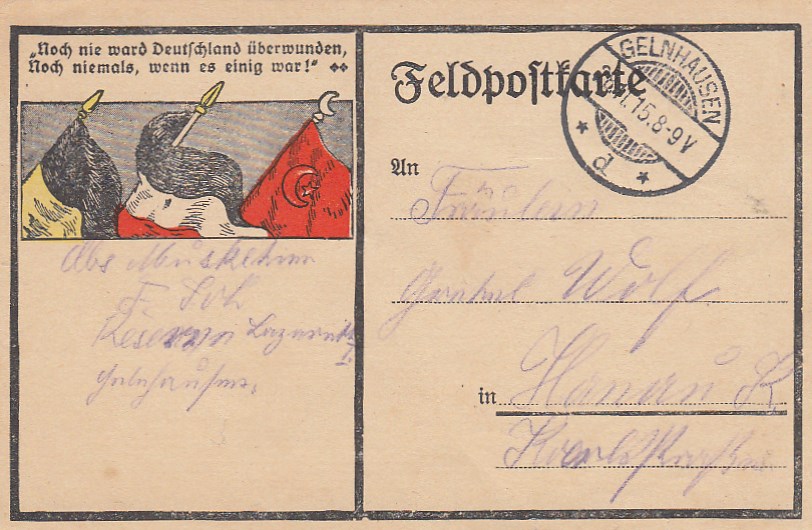 „Noch nie ward Deutschland überwunden,
Noch niemals, wenn es einig war!"
Feldpostkarte
GELNHAUSEN
15.8-9V
d
An
Fräulein
Wolf
in Hanau
Abs Musketier
F.
Reserve Lazarett
Gelnhausen.